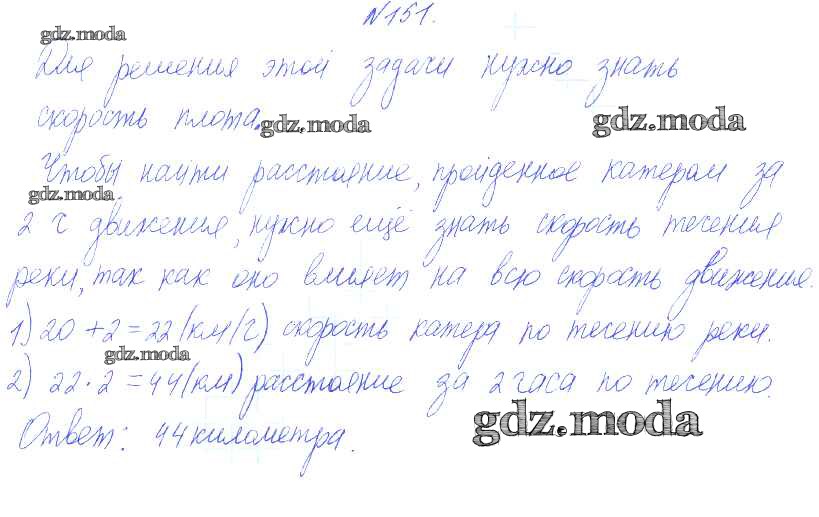 №151.
gdz.moda
Для решения этой задачи нужно знать
скорость плота.
gdz.moda
gdz.moda
Чтобы найти расстояние, пройденное катером за
gdz.moda
2 ч движения, нужно ещё знать скорость течения
реки, так как оно влияет на всю скорость движения.
1) 20 + 2 = 22 (км/ч) скорость катера по течению реки.
gdz.moda
2) 22 · 2 = 44 (км) расстояние за 2 часа по течению.
gdz.moda
Ответ: 44 километра.